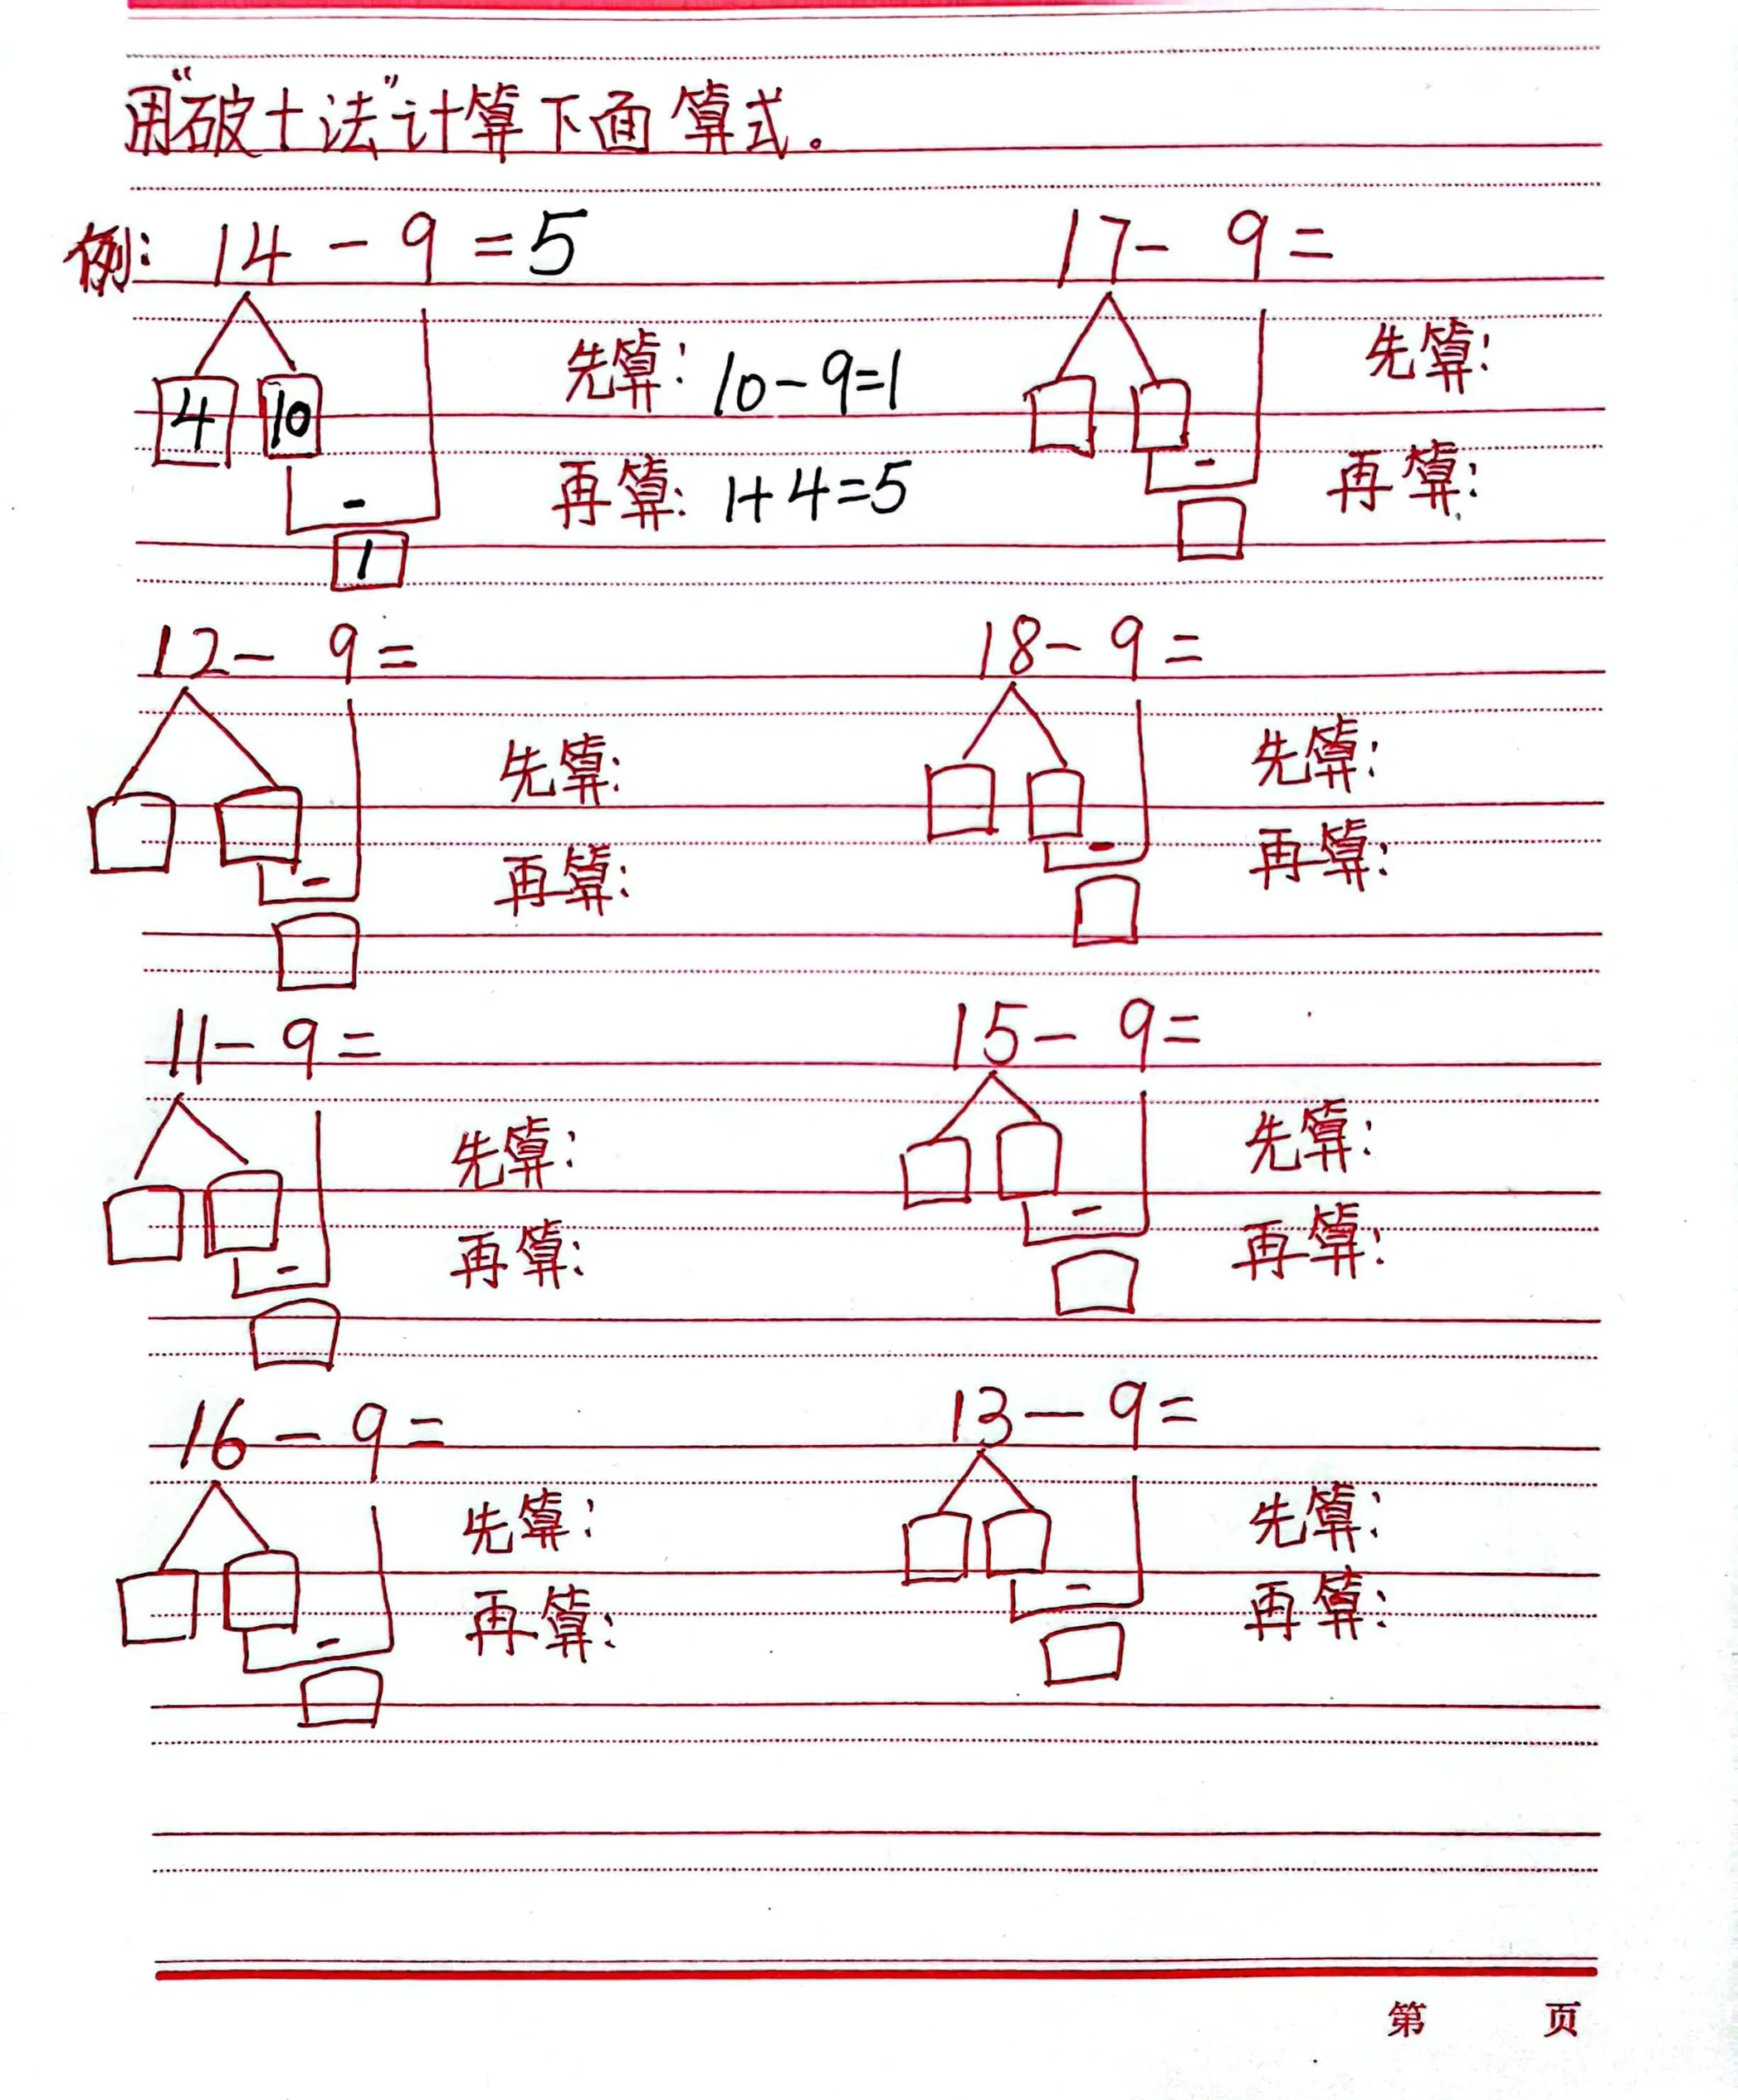 用“破十法”计算下面算式。
例: 14 - 9 = 5
4 10
-
1
先算: 10-9=1
再算: 1+4=5
17- 9 =
-
先算:
再算:
12- 9 =
-
先算:
再算:
18- 9 =
-
先算:
再算:
11- 9 =
-
先算:
再算:
15- 9 =
-
先算:
再算:
16 - 9 =
-
先算:
再算:
13- 9 =
-
先算:
再算:
第 页